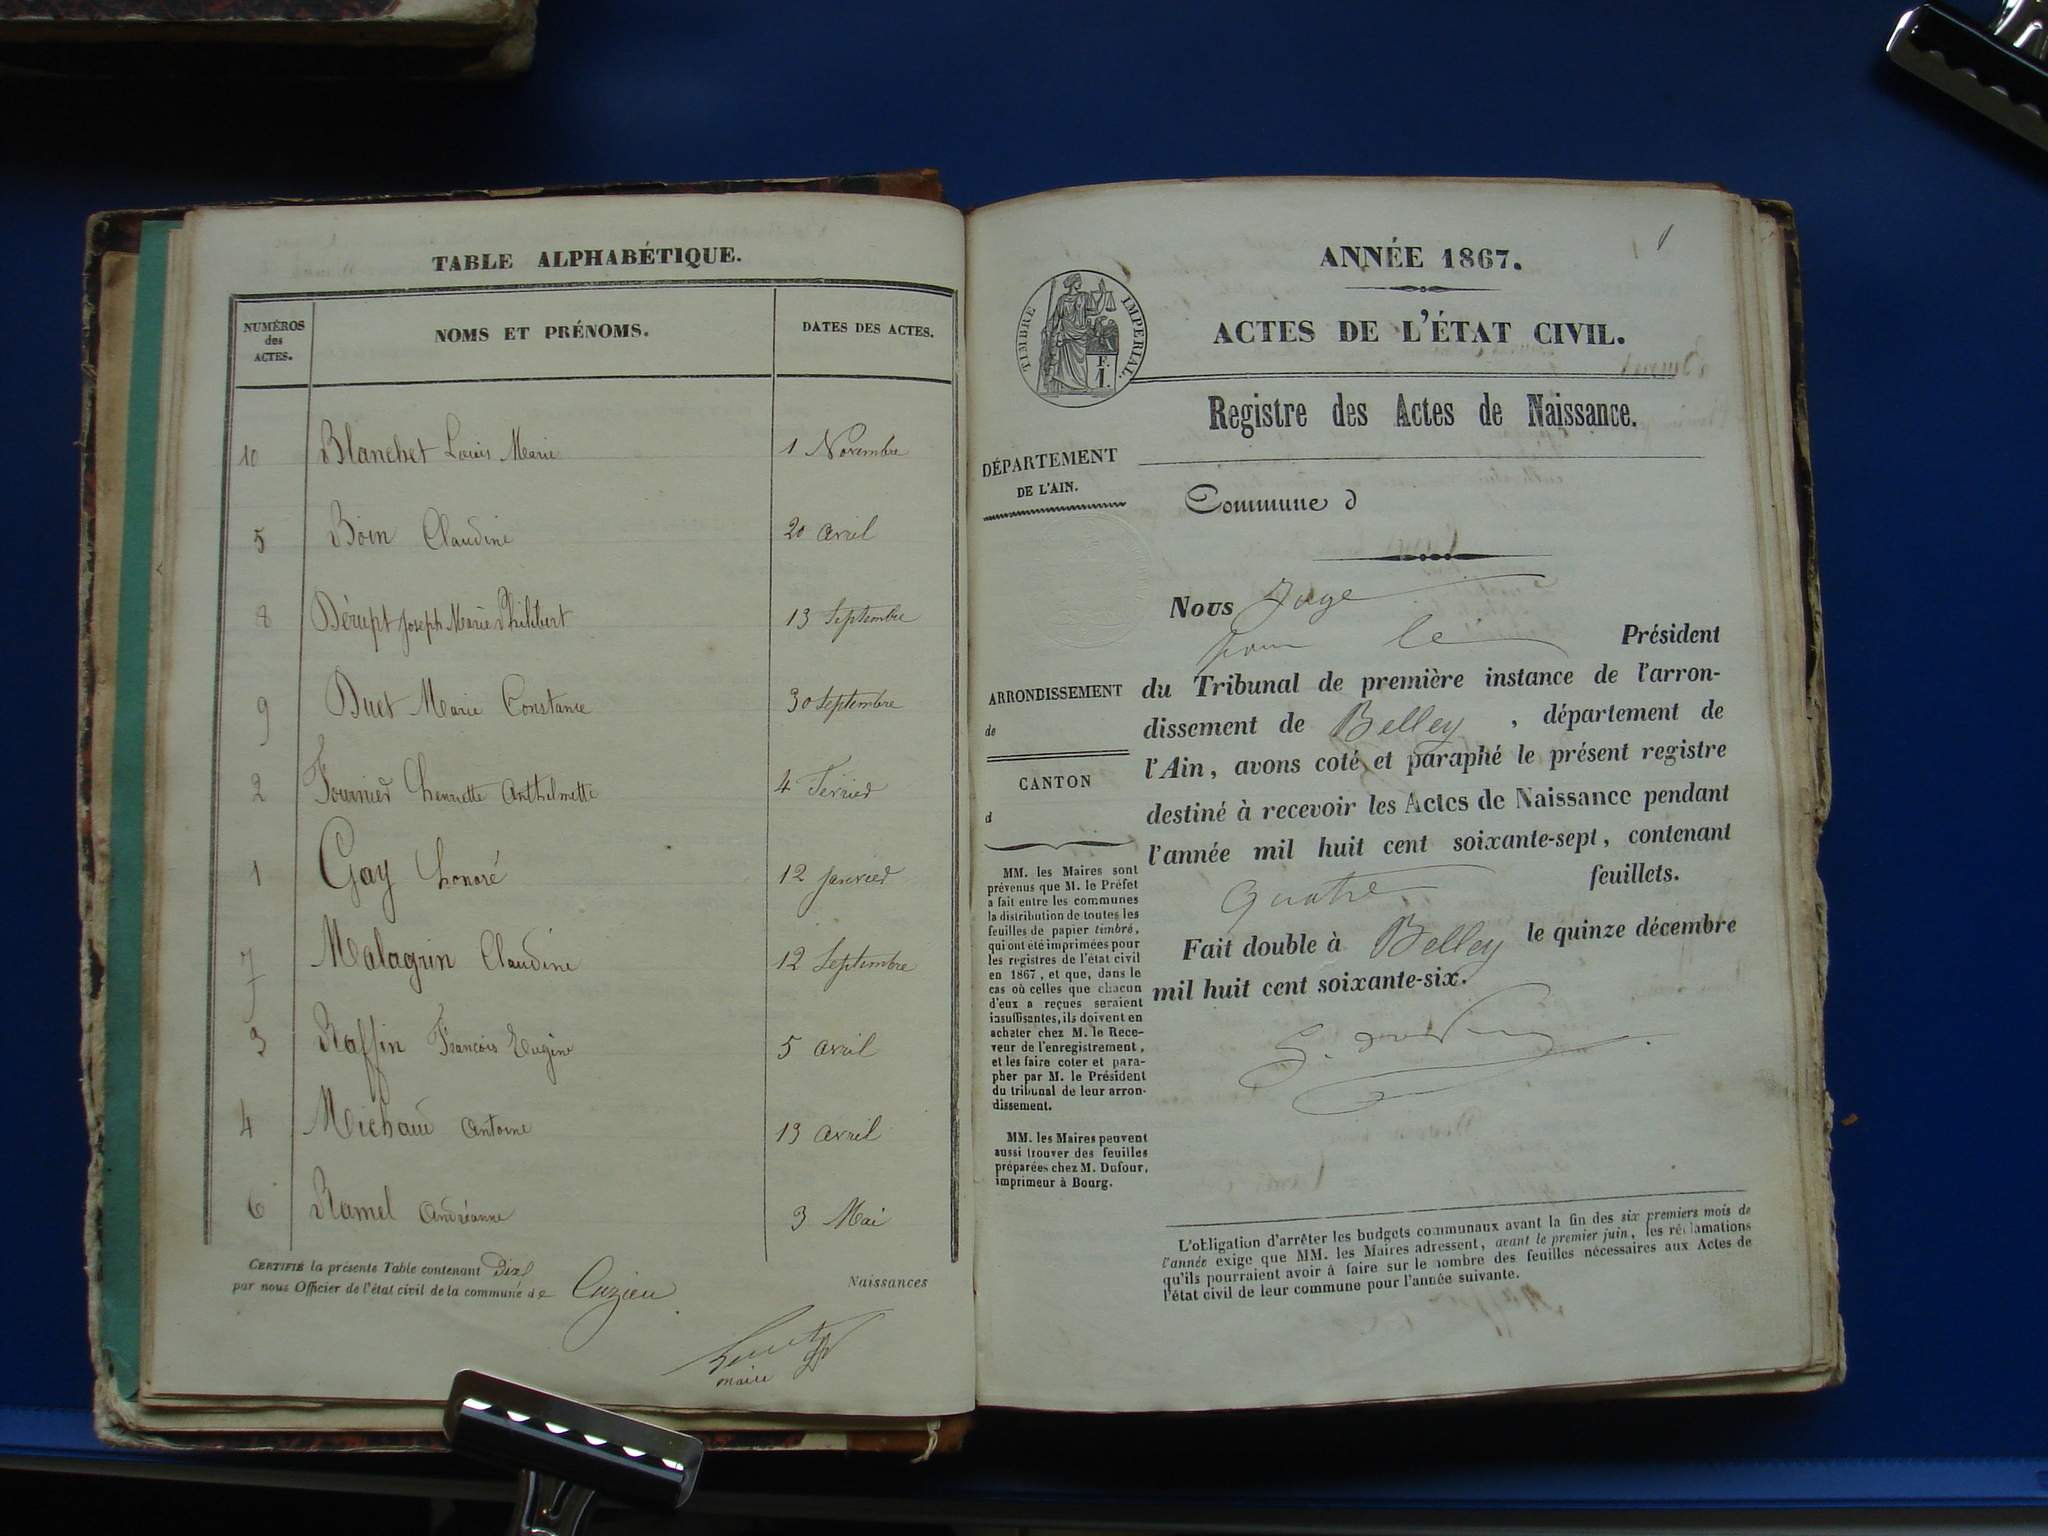 TABLE ALPHABÉTIQUE.
NUMÉROS
des
ACTES.
NOMS ET PRÉNOMS.
DATES DES ACTES.
10 Blanchet Louis Marie 1 Novembre
5 Boin Claudine 20 avril
8 Dérupt Joseph Marie Philibert 13 Septembre
9 Duet Marie Constance 30 Septembre
2 Fournier henriette Anthelmette 4 Février
1 Gay honoré 12 janvier
7 Malagrin Claudine 12 Septembre
3 Raffin François Eugène 5 avril
4 Michaud Antoine 13 avril
6 Ramel Andréanne 3 Mai
CERTIFIÉ la présente Table contenant Dix Naissances
par nous Officier de l'état civil de la commune de Cuzieu
maire
1
ANNÉE 1867.
ACTES DE L'ÉTAT CIVIL.
TIMBRE IMPERIAL.
Registre des Actes de Naissance.
DÉPARTEMENT
DE L'AIN.
Commune d
ARRONDISSEMENT
de
CANTON
d
MM. les Maires sont
prévenus que M. le Préfet
a fait entre les communes
la distribution de toutes les
feuilles de papier timbré,
qui ont été imprimées pour
les registres de l'état civil
en 1867, et que, dans le
cas où celles que chacun
d'eux a reçues seraient
insuffisantes, ils doivent en
acheter chez M. le Rece-
veur de l'enregistrement,
et les faire coter et para-
pher par M. le Président
du tribunal de leur arron-
dissement.
MM. les Maires peuvent
aussi trouver des feuilles
préparées chez M. Dufour,
imprimeur à Bourg.
Nous Juge
pour le Président
du Tribunal de première instance de l'arron-
dissement de Belley, département de
l'Ain, avons coté et paraphé le présent registre
destiné à recevoir les Actes de Naissance pendant
l'année mil huit cent soixante-sept, contenant
quatre feuillets.
Fait double à Belley le quinze décembre
mil huit cent soixante-six.
L'obligation d'arrêter les budgets communaux avant la fin des six premiers mois de
l'année exige que MM. les Maires adressent, avant le premier juin, les réclamations
qu'ils pourraient avoir à faire sur le nombre des feuilles nécessaires aux Actes de
l'état civil de leur commune pour l'année suivante.